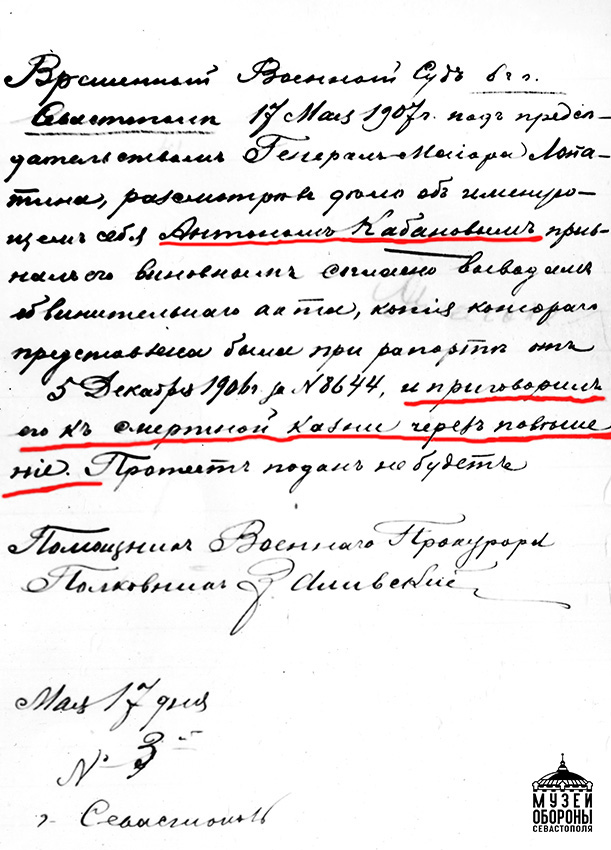 Временный Военный Судъ въ г.
Севастополѣ 17 Мая 1907 г. подъ предсѣ-
дательствомъ Генералъ-Маіора Лопа-
тина, разсмотрѣвъ дѣло объ именую-
щемъ себя Антономъ Кабановымъ приз-
налъ его виновнымъ согласно выводамъ
обвинительнаго акта, копія котораго
представлена была при рапортѣ отъ
5 Декабря 1906 г. за № 8644, и приговорилъ
его къ смертной казни черезъ повѣше
ніе. Протестъ поданъ не будетъ
Помощникъ Военнаго Прокурора
Полковникъ
Мая 17 дня
№ 3
г. Севастополь
МУЗЕЙ
ОБОРОНЫ
СЕВАСТОПОЛЯ